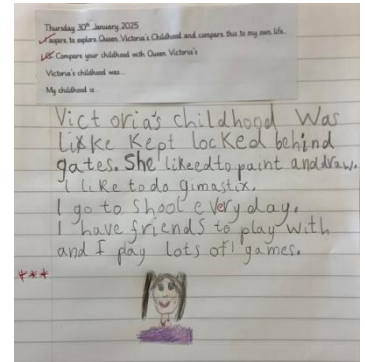 Thursday 30th January 2025
I aspire to explore Queen Victoria's Childhood and compare this to my own life.
Compare your childhood with Queen Victoria's
Victoria's childhood was...
My childhood is...
Victoria's childhood Was
likke kept locked behind
gates. She likeed to paint and draw.
I like to do gimastix.
I go to shool every day.
I have friends to play with
and I play lots of games.
***